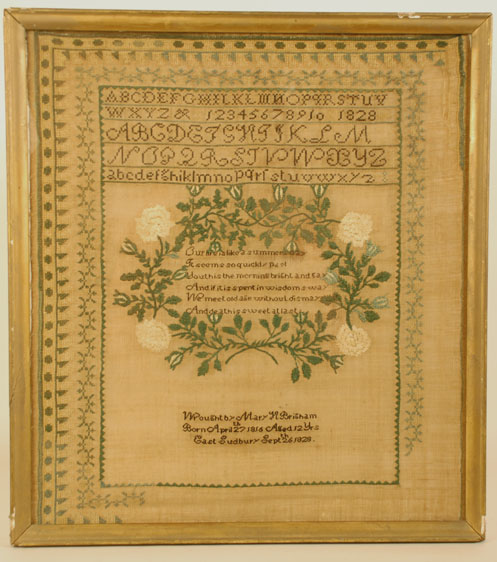 ABCDEFGHIKLMNOPQRSTUV
WXYZ& 12345678910 1828
ABCDEFGHIKLM
NOPQRSTVWXYZ
abcdefghiklmnopqrſstuvwxyz
Our life is like a summers day
It seems so quickly past
Youth is the morning bright and gay
And if it is spent in wisdoms way
We meet old age without dismay
And death is sweet at last
Wrought by Mary N Brigham
Born April 27th 1816 Aged 12 Yrs
East Sudbury Septth 26 1828